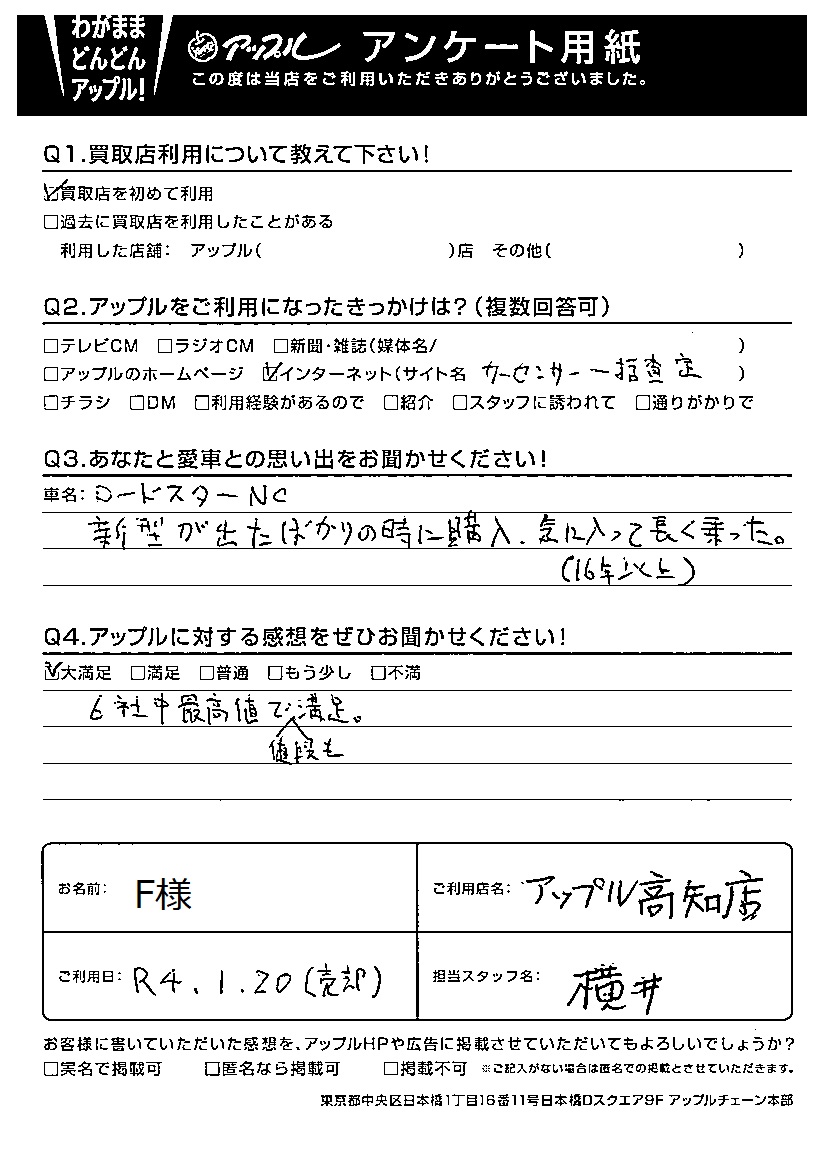 わがまま
どんどん
アップル!
アップル アンケート用紙
この度は当店をご利用いただきありがとうございました。
Q1.買取店利用について教えて下さい!
☑買取店を初めて利用
□過去に買取店を利用したことがある
利用した店舗: アップル( )店 その他( )
Q2.アップルをご利用になったきっかけは?(複数回答可)
□テレビCM □ラジオCM □新聞・雑誌(媒体名/ )
□アップルのホームページ ☑インターネット(サイト名 カーセンサー一括査定 )
□チラシ □DM □利用経験があるので □紹介 □スタッフに誘われて □通りがかりで
Q3.あなたと愛車との思い出をお聞かせください!
車名: ロードスターNC
新型が出たばかりの時に購入.気に入って長く乗った。
(16年以上)
Q4.アップルに対する感想をぜひお聞かせください!
☑大満足 □満足 □普通 □もう少し □不満
6社中最高値で満足。
値段も
お名前: F様 ご利用店名: アップル高知店
ご利用日: R4.1.20(売却) 担当スタッフ名: 横井
お客様に書いていただいた感想を、アップルHPや広告に掲載させていただいてもよろしいでしょうか?
□実名で掲載可 □匿名なら掲載可 □掲載不可 ※ご記入がない場合は匿名での掲載とさせていただきます。
東京都中央区日本橋1丁目16番11号日本橋Dスクエア9F アップルチェーン本部